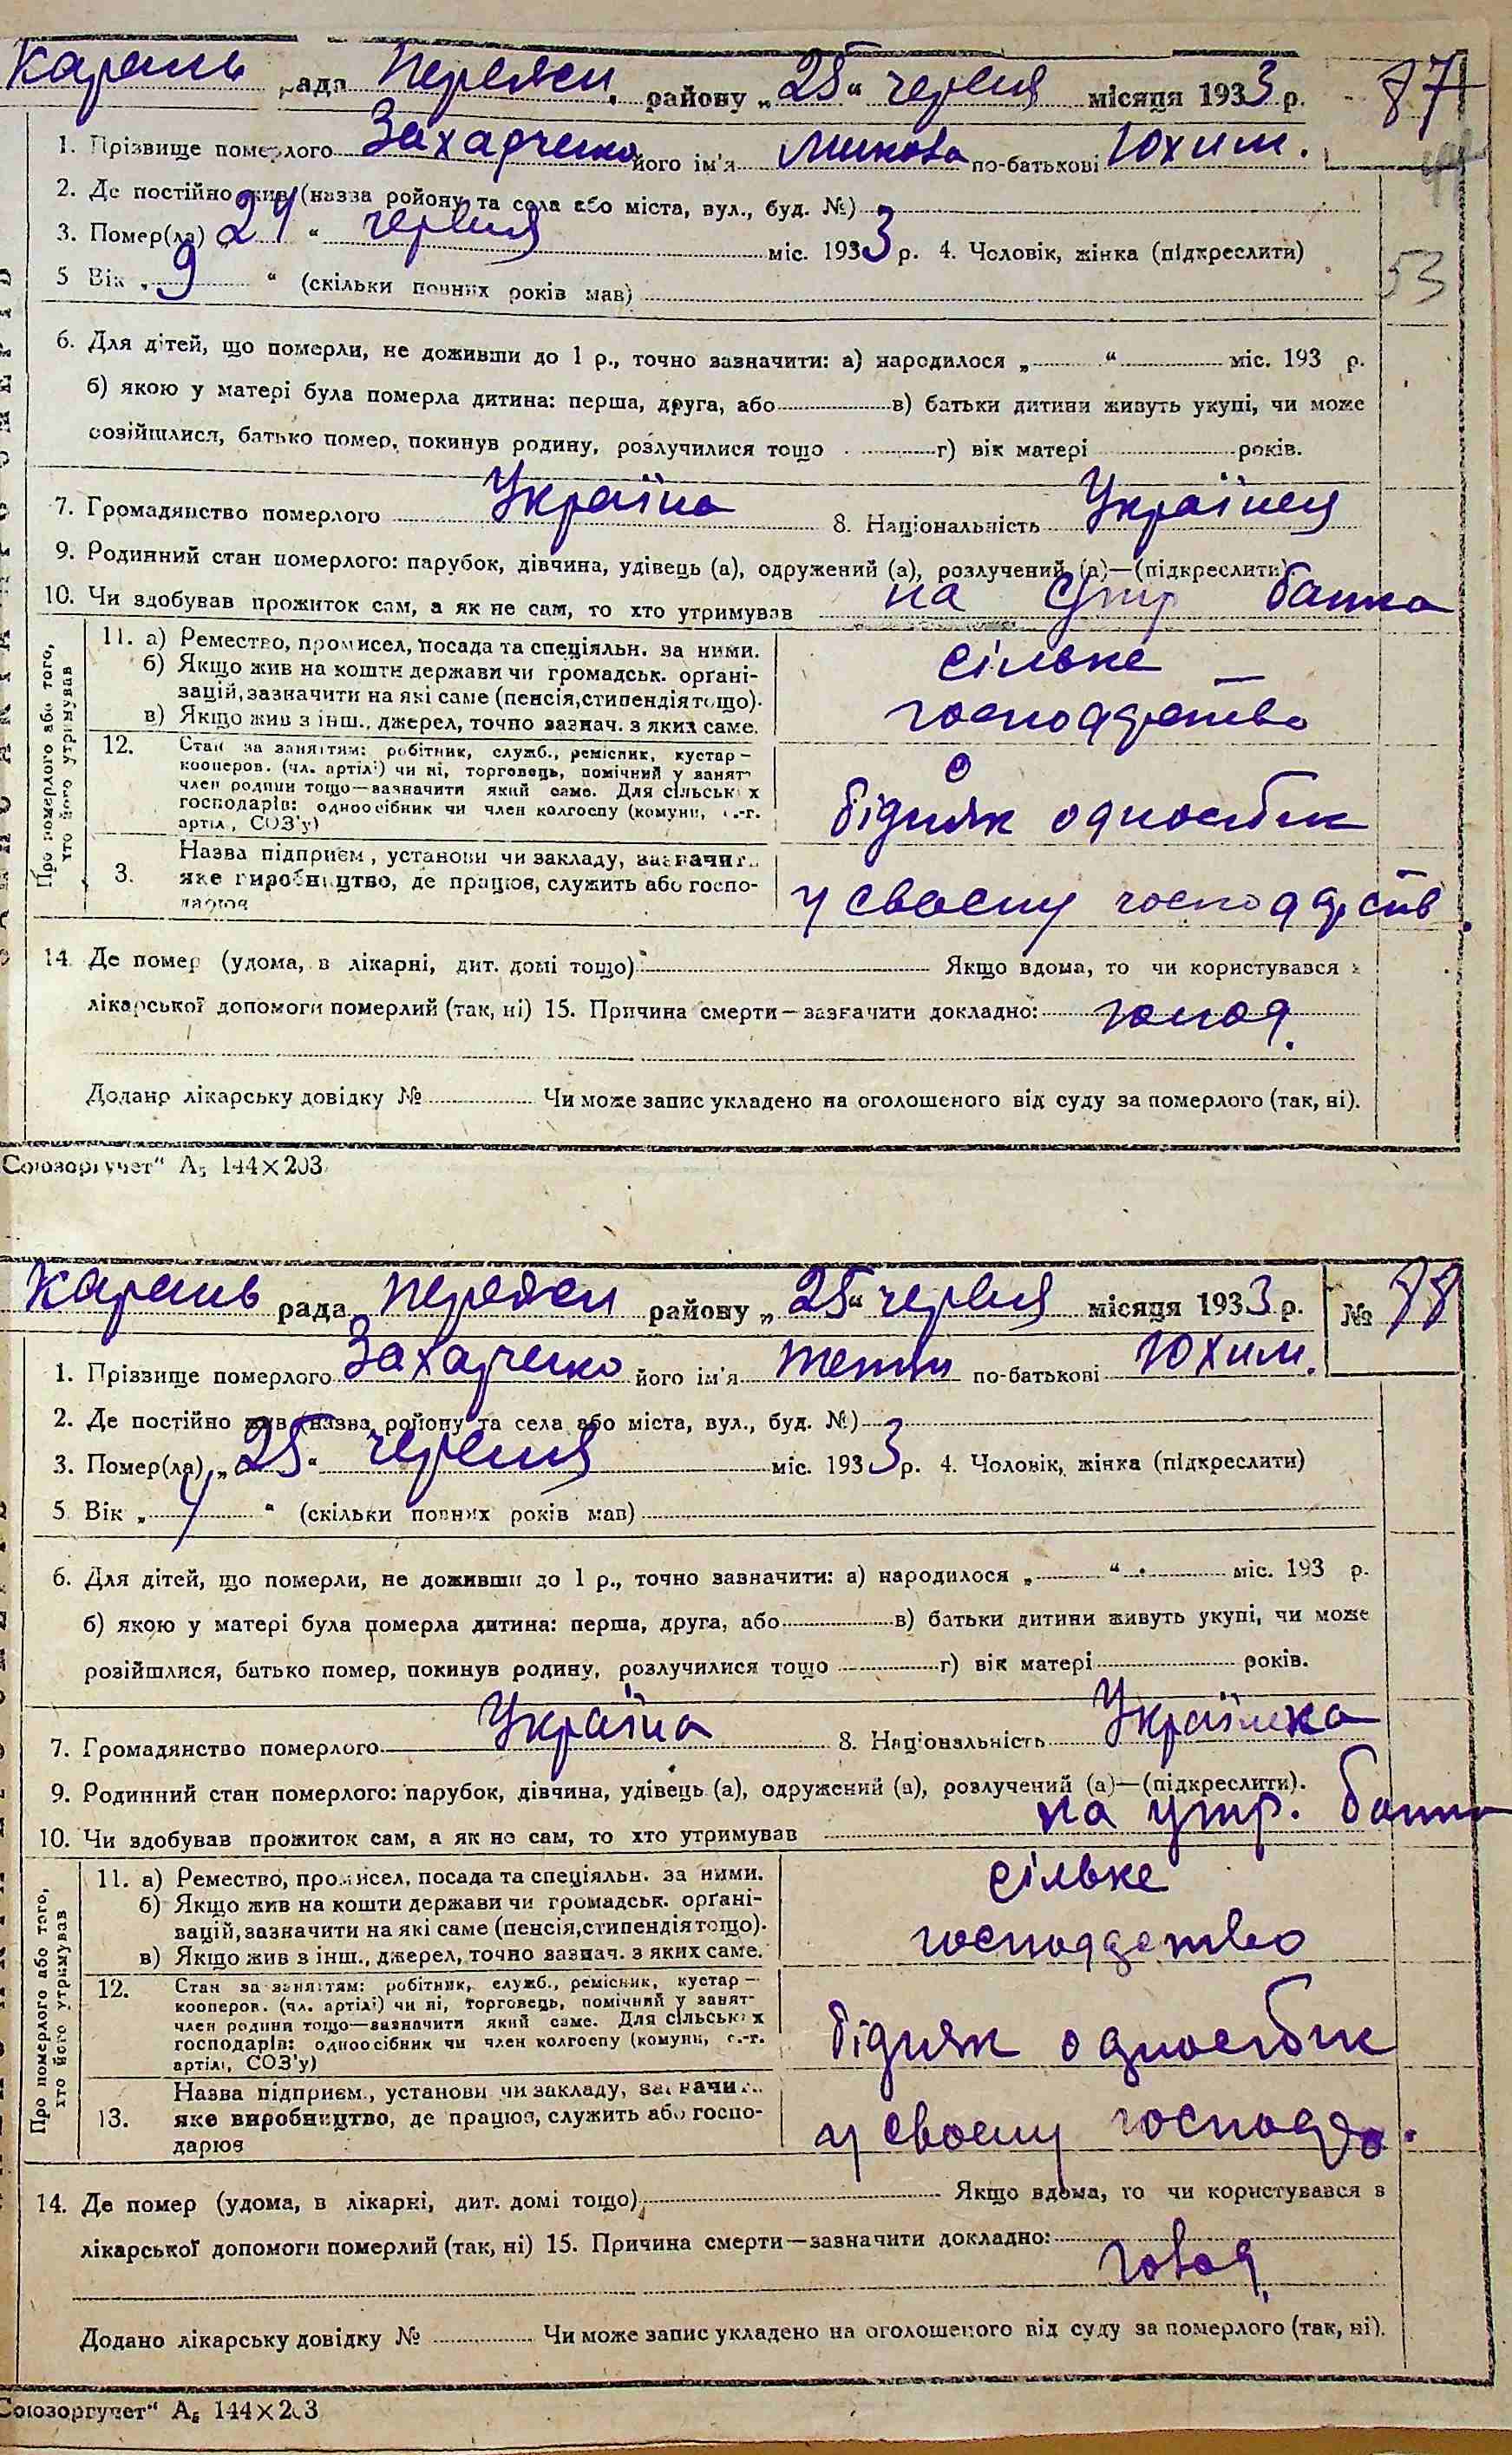 Карань рада Переясл. району „25“ червня місяця 1933 р. 87
1. Прізвище померлого Захарченко його ім'я Микола по-батькові Юхим.
2. Де постійно жив (назва району та села або міста, вул., буд. №)
3. Помер(ла) „24“ червня міс. 1933 р. 4. Чоловік, жінка (підкреслити)
5 Вік „9“ (скільки повних років мав) 53
6. Для дітей, що померли, не доживши до 1 р., точно зазначити: а) народилося „ “ міс. 193 р.
б) якою у матері була померла дитина: перша, друга, або в) батьки дитини живуть укупі, чи може
розійшлися, батько помер, покинув родину, розлучилися тощо г) вік матері років.
7. Громадянство померлого Україна 8. Національність Українец
9. Родинний стан померлого: парубок, дівчина, удівець (а), одружений (а), розлучений (а)—(підкреслити)
10. Чи здобував прожиток сам, а як не сам, то хто утримував на утр батка
Про померлого або того, хто його утримував
11. а) Ремество, промисел, посада та спеціяльн. за ними.
б) Якщо жив на кошти держави чи громадськ. орґані-
зацій, зазначити на які саме (пенсія, стипендія тощо).
в) Якщо жив з інш., джерел, точно зазнач. з яких саме.
сільске
господарство
12. Стан за заняттям: робітник, служб., ремісник, кустар—
кооперов. (чл. артілі) чи ні, торговець, помічний у занят-
член родини тощо—зазначити який саме. Для сільськ х
господарів: одноосібник чи член колгоспу (комуни, с.-г.
артіл, СОЗ'у)
бідняк одноосібник
3. Назва підприєм, установи чи закладу, зазначит..
яке виробництво, де працює, служить або госпо-
дарює
у своєму господарств.
14. Де помер (удома, в лікарні, дит. домі тощо) Якщо вдома, то чи користувався з
лікарської допомоги померлий (так, ні) 15. Причина смерти—зазначити докладно: голод.
Додано лікарську довідку № Чи може запис укладено на оголошеного від суду за померлого (так, ні).
Союзоргучет“ А5 144×203
Карань рада Переясл району „25“ червня місяця 1933 р. № 88
1. Прізвище померлого Захарченко його ім'я Тетян по-батькові Юхим.
2. Де постійно жив (назва району та села або міста, вул., буд. №)
3. Помер(ла) „25“ червня міс. 1933 р. 4. Чоловік, жінка (підкреслити)
5 Вік „ “ (скільки повних років мав)
6. Для дітей, що померли, не доживши до 1 р., точно зазначити: а) народилося „ “ міс. 193 р.
б) якою у матері була померла дитина: перша, друга, або в) батьки дитини живуть укупі, чи може
розійшлися, батько помер, покинув родину, розлучилися тощо г) вік матері років.
7. Громадянство померлого Україна 8. Національність Українка
9. Родинний стан померлого: парубок, дівчина, удівець (а), одружений (а), розлучений (а)—(підкреслити).
10. Чи здобував прожиток сам, а як не сам, то хто утримував на утр. батка
Про померлого або того, хто його утримував
11. а) Ремество, промисел, посада та спеціяльн. за ними.
б) Якщо жив на кошти держави чи громадськ. орґані-
зацій, зазначити на які саме (пенсія, стипендія тощо).
в) Якщо жив з інш., джерел, точно зазнач. з яких саме.
сільске
господарство
12. Стан за заняттям: робітник, служб., ремісник, кустар—
кооперов. (чл. артілі) чи ні, торговець, помічний у занят-
член родини тощо—зазначити який саме. Для сільськ х
господарів: одноосібник чи член колгоспу (комуни, с.-г.
артілі, СОЗ'у)
бідняк одноосібник
13. Назва підприєм., установи чи закладу, зазначит..
яке виробництво, де працює, служить або госпо-
дарює
у своєму господар.
14. Де помер (удома, в лікарні, дит. домі тощо) Якщо вдома, то чи користувався в
лікарської допомоги померлий (так, ні) 15. Причина смерти—зазначити докладно:
голод.
Додано лікарську довідку № Чи може запис укладено на оголошеного від суду за померлого (так, ні).
Союзоргучет“ А5 144×203